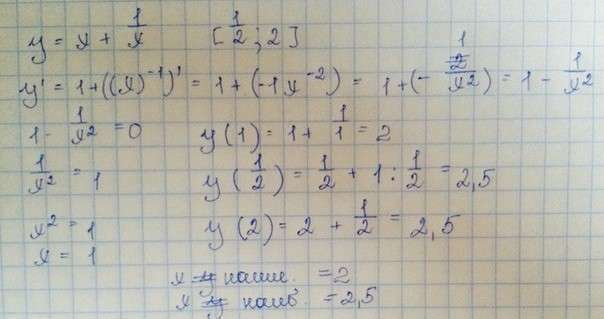 y = x + 1/x [1/2; 2]
y' = 1+((x)⁻¹)' = 1+(-1x⁻²) = 1+(-1/x²) = 1 - 1/x²
1 - 1/x² = 0 y(1) = 1 + 1/1 = 2
1/x² = 1 y(1/2) = 1/2 + 1 : 1/2 = 2,5
x² = 1 y(2) = 2 + 1/2 = 2,5
x = 1
x y наим. = 2
x y наиб. = 2,5